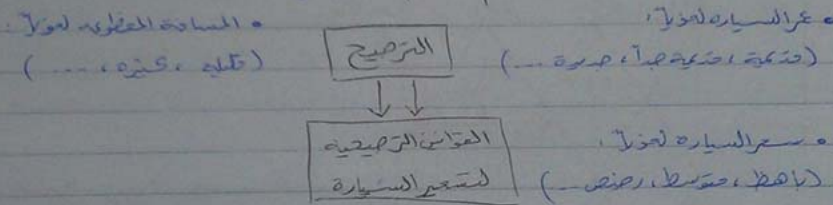 • عمر السيارة لغوياً:
(قديمة، قديمة جداً، جديدة ...)
الترجيح
• المسافة المقطوعة لغوياً:
(قليلة، كثيرة، ...)
القوانين الترجيحية
لتسعير السيارة
• سعر السيارة لغوياً:
(باهظ، متوسط، رخيص ...)